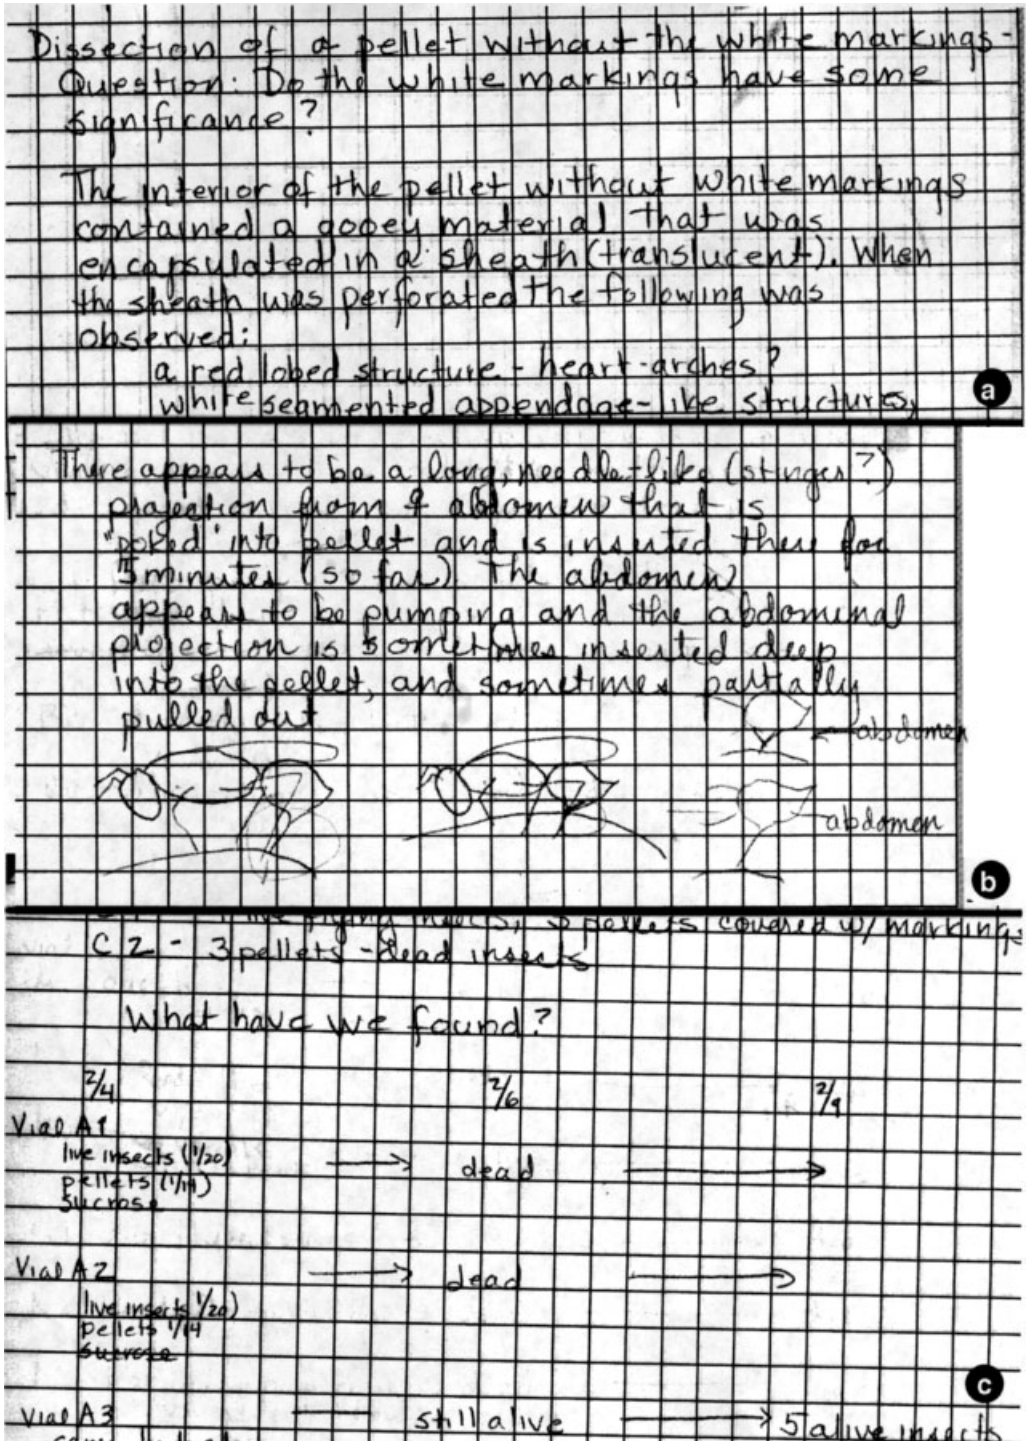 Dissection of a pellet without the white markings-
Question: Do the white markings have some
significance?
The interior of the pellet without white markings
contained a gooey material that was
encapsulated in a sheath (translucent). When
the sheath was perforated the following was
observed:
a red lobed structure - heart-arches?
white segmented appendage-like structures,
a
There appears to be a long, needle-like (stinger?)
projection from ♀ abdomen that is
"poked" into pellet and is inserted there for
5 minutes (so far). The abdomen
appears to be pumping and the abdominal
projection is sometimes inserted deep
into the pellet, and sometimes partially
pulled out
abdomen
abdomen
b
flying insects, 3 pellets covered w/ markings
C2 - 3 pellets - dead insects
What have we found?
2/4 2/6 2/9
Vial A1
live insects (1/20) → dead →
pellets (1/14)
sucrose
Vial A2 → dead →
live insects 1/20)
pellets 1/14
sucrose
c
Vial A3 → still alive → 5 alive insects